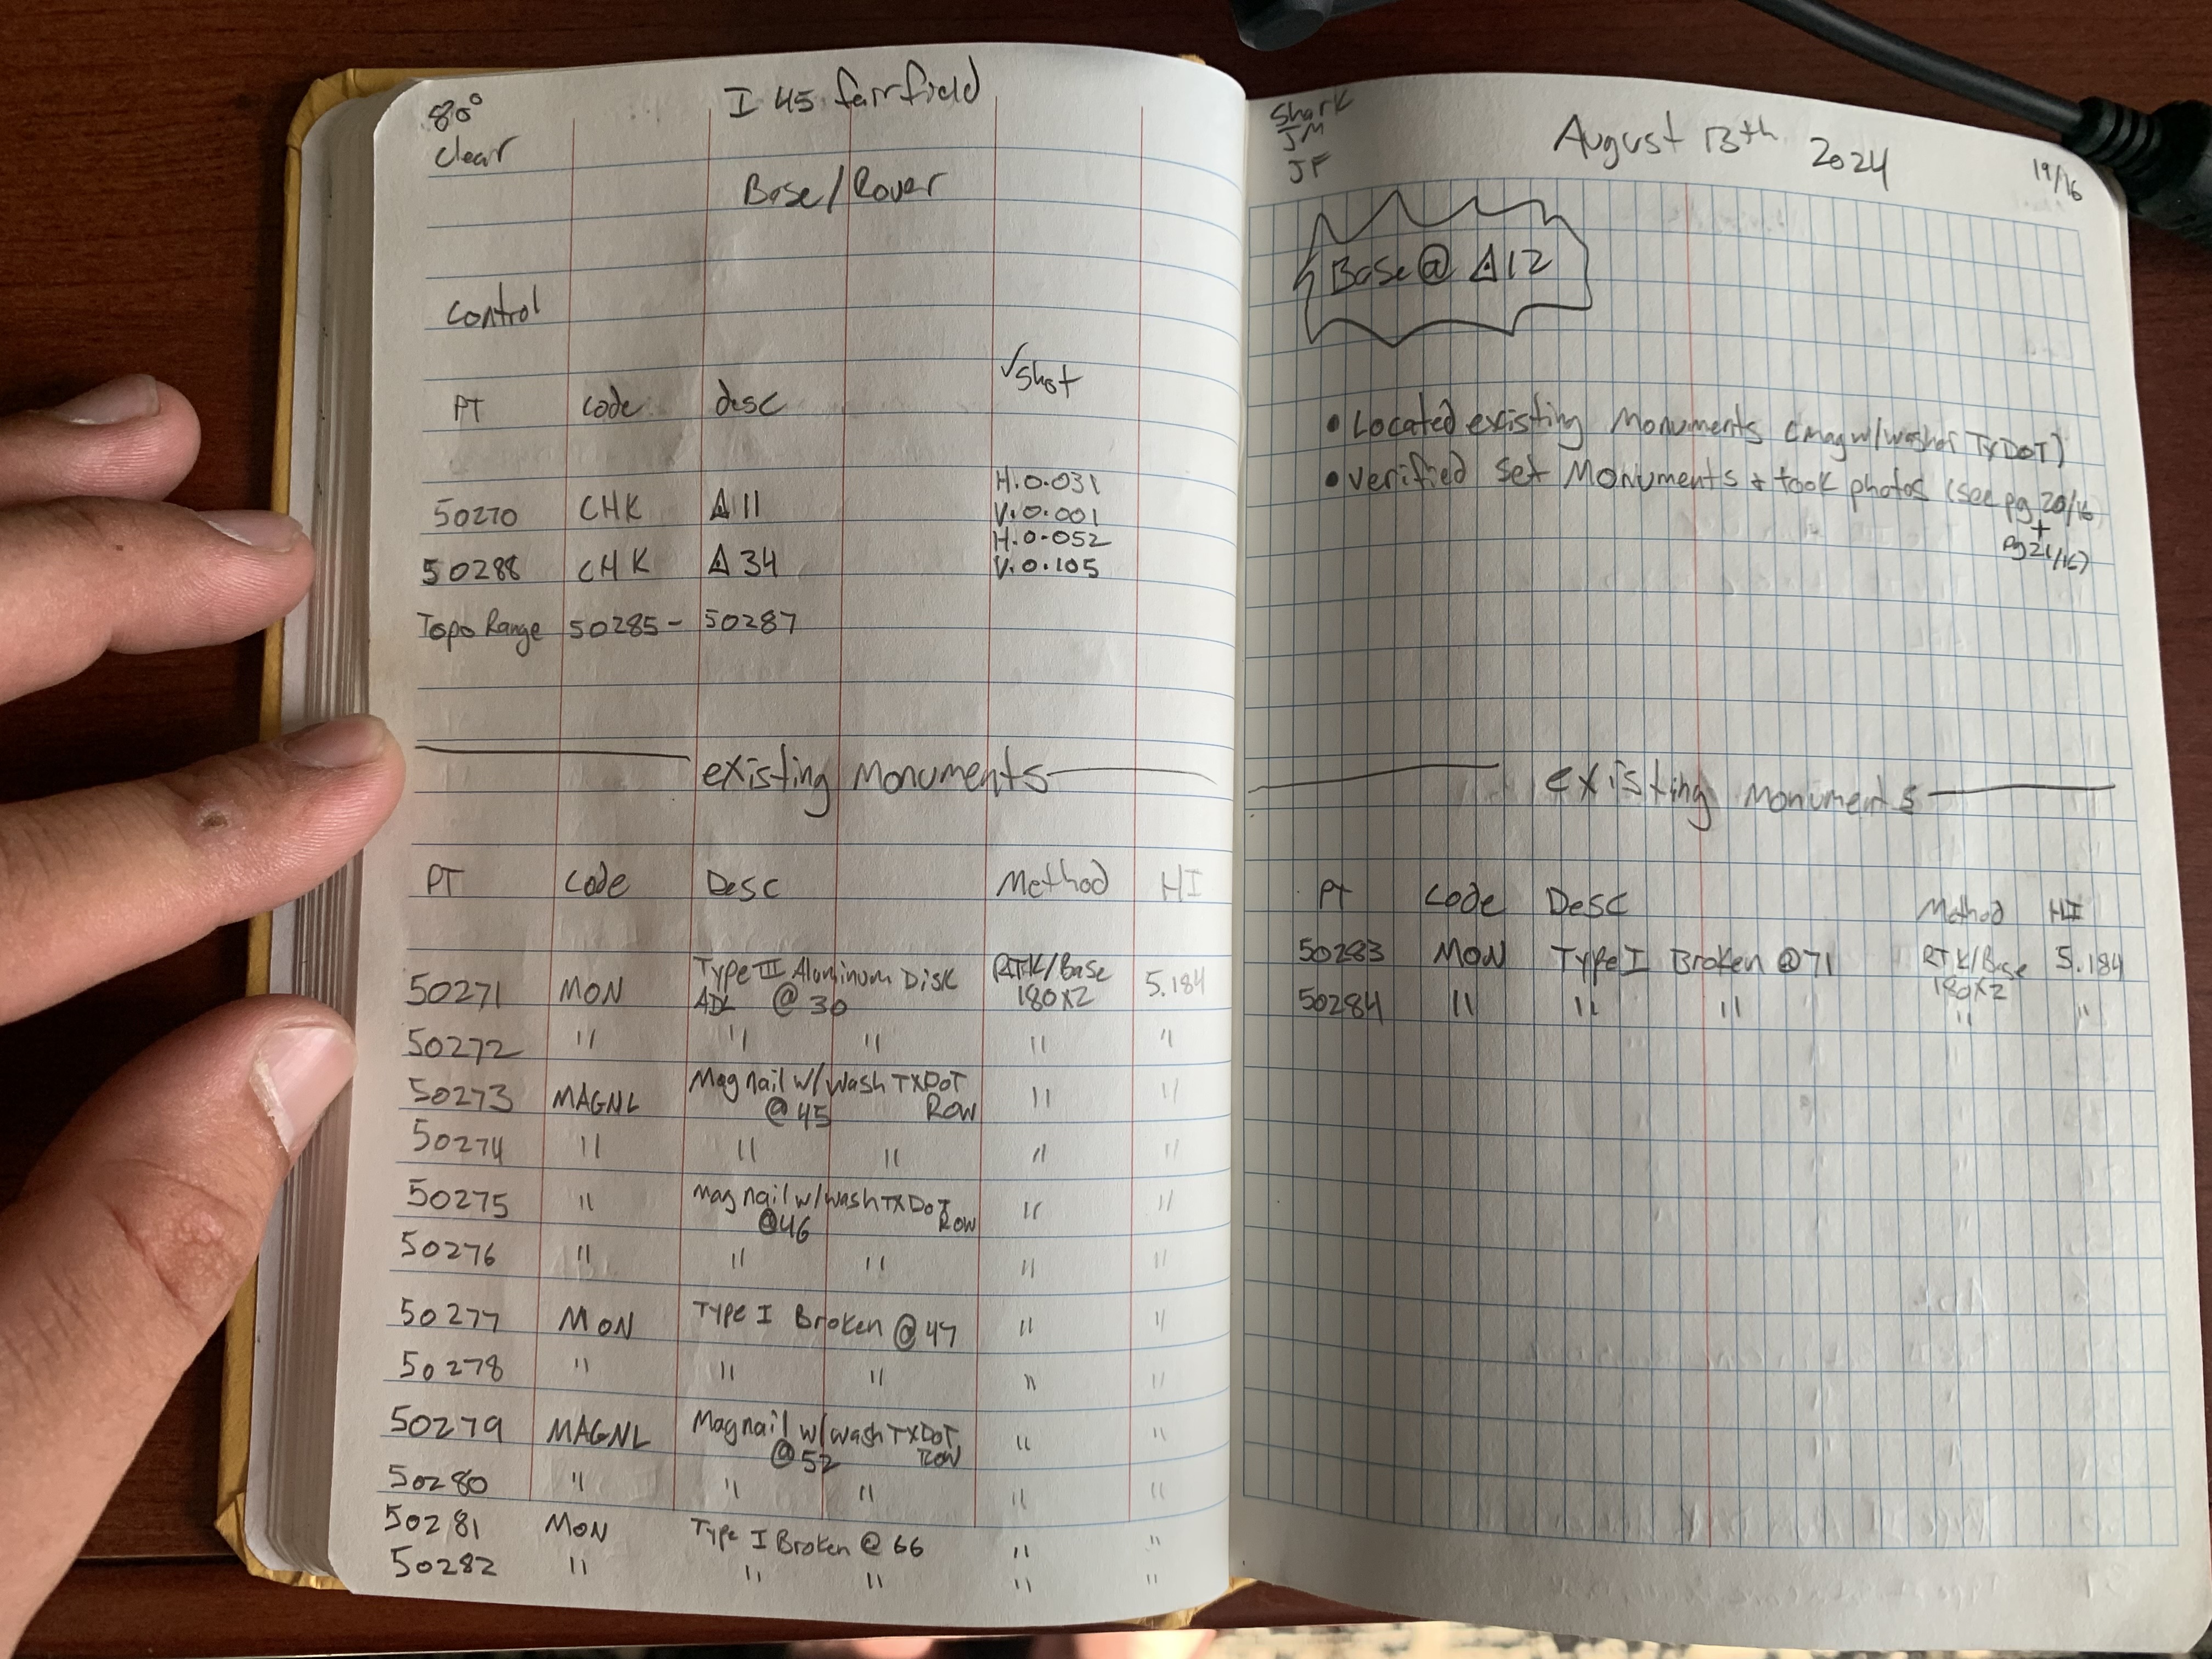 80°
clear
I 45 fairfield
Base/Rover
Control
PT code desc √Shot
50270 CHK △11 H.0.031
V.0.001
50288 CHK △34 H.0.052
V.0.105
Topo Range 50285 - 50287
existing Monuments
PT Code Desc Method HI
50271 MON Type III Aluminum Disk RTK/Base 5.184
@ 30 180x2
50272 " " " " "
50273 MAGNL Mag nail w/wash TXDOT " "
@ 45 ROW
50274 " " " " "
50275 " mag nail w/wash TXDOT " "
@46 ROW
50276 " " " " "
50277 MON Type I Broken @ 47 " "
50278 " " " " "
50279 MAGNL Mag nail w/wash TXDOT " "
@ 52 ROW
50280 " " " " "
50281 MON Type I Broken @ 66 " "
50282 " " " " "
Shark
JM
JF
August 13th 2024
19/16
Base @ △12
• Located existing Monuments (mag w/washer TxDOT)
• verified set Monuments + took photos (see pg 20/16
+
pg 21/16)
existing monuments
PT Code Desc Method HI
50283 MON Type I Broken @71 RTK/Base 5.184
180x2
50284 " " " " "